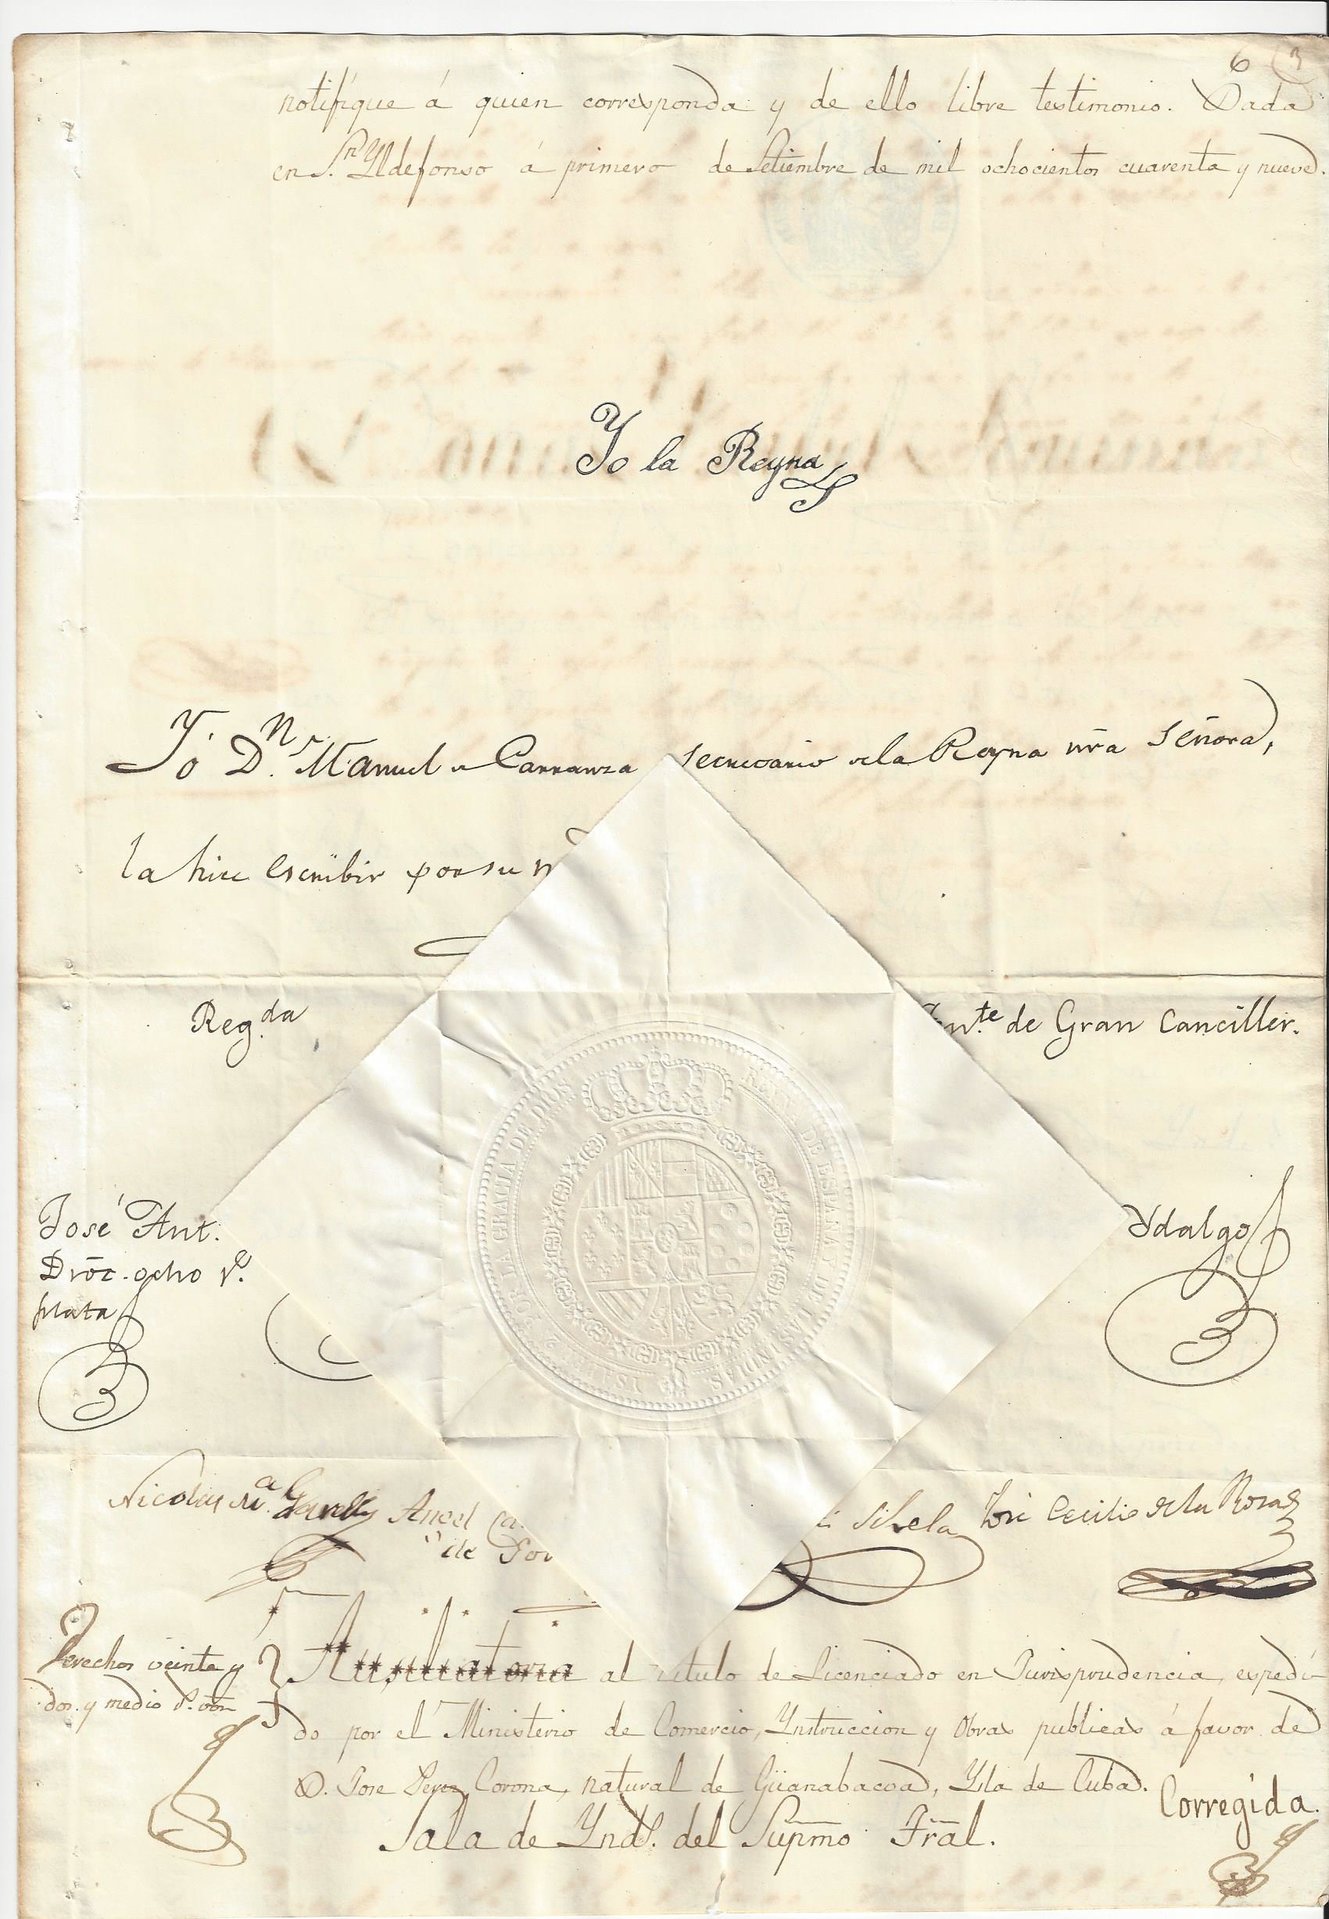 6 3
notifique á quien corresponda: y de ello libre testimonio. Dada
en Sn. Yldefonso á primero de Setiembre de mil ochocientos cuarenta y nueve.
Yo la Reyna
Yo Dn. Manuel de Carranza secretario de la Reyna nra Señora,
la hice escribir por su
Regda
Tente de Gran Canciller.
DE LA GRACIA DE DIOS REINA DE ESPAÑA Y DE LAS INDIAS
José Ant.
Ydalgo
Droc. ocho rs.
plata
Nicolas Ma. Garelly Angel
Silvela José Cecilio de la Rosa
de
Derechos veinte y
dos y medio rs. von
Auxiliatoria al título de Licenciado en Jurisprudencia, expedi-
do por el Ministerio de Comercio, Ynstruccion y Obras publicas á favor de
D. Jose Perez Corona, natural de Güanabacoa, Ysla de Cuba.
Corregida.
Sala de YndS. del Supmo Tral.